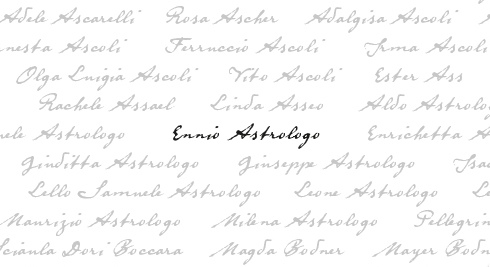 Adele Ascarelli Rosa Ascher Adalgisa Ascoli
nesta Ascoli Ferruccio Ascoli Irma Ascoli
Olga Luigia Ascoli Vito Ascoli Ester Ass
Rachele Assael Linda Asseo Aldo Astrolo
ele Astrologo Ennio Astrologo Enrichetta
Giuditta Astrologo Giuseppe Astrologo Isa
Lello Samuele Astrologo Leone Astrologo Le
Maurizio Astrologo Milena Astrologo Pellegrin
Sciaula Dori Boccara Magda Bodner Mayer Bodne